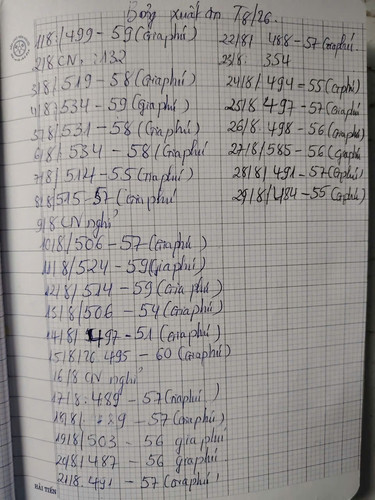 Bảng xuất ăn T8/26.
1/8/499-59(Giaphú)
2/8 CN. : 132
3/8/519-58(Giaphú)
4/8/534-59(Giaphú)
5/8/531-58(Giaphú)
6/8/534-58(Giaphú)
7/8/514-55(Giaphú)
8/8 515-57(Giaphú
9/8 CN nghỉ
10/8/506-57(Giaphú)
11/8/524-59(Giaphú)
12/8/514-59(Gia phú)
13/8/506-54(Giaphú)
14/8/497-51(Giaphú)
15/8/26 495-60(Giaphú)
16/8 CN nghỉ
17/8.489-57(Giaphú)
18/8/ 9-57(Giaphú)
19/8/503-56 giaphú
20/8/487-56 giaphú
21/8.491-57(Giaphú)
22/8/ 488-57(Giaphú.
23/8 354
24/8/494=55(Giaphú)
25/8 497-57(Giaphú
26/8 498-56(Giaphú
27/8/585-56(Giaphú
28/8/491-57(Giaphú)
29/8/484-55(Giaphú)
HẢI TIẾN